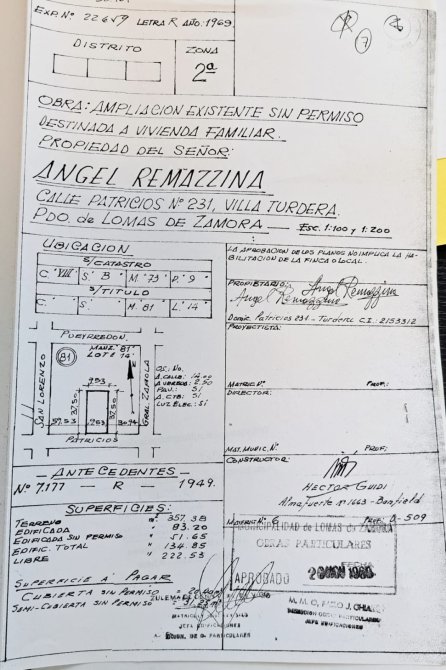 EXP. Nº 22659 LETRA R AÑO: 1969
DISTRITO
ZONA
2ª
7
OBRA: AMPLIACION EXISTENTE SIN PERMISO
DESTINADA A VIVIENDA FAMILIAR.
PROPIEDAD DEL SEÑOR:
ANGEL REMAZZINA
CALLE PATRICIOS Nº 231, VILLA TURDERA.
PDO. de LOMAS DE ZAMORA. ESC. 1:100 y 1:200
UBICACION
S/CATASTRO
C. VIII S. B M. 73 P. 9
S/TITULO
C. S. M. 81 L. 14
PUEYRREDON.
MANZ. 81
LOTE 14
81
SAN LORENZO
GRAL. ZAPIOLA
9.53
37.50
37.50
57.53 9.53 30.94
PATRICIOS
A. CALLE:
A. VEREDA: 2.50
PAV.: SI
A. CTE: SI
LUZ ELEC.: SI
ANTECEDENTES
Nº 7.177 - R - 1949.
SUPERFICIES:
TERRENO 357.38
EDIFICADA 83.20
EDIFICADA SIN PERMISO 51.65
EDIFIC. TOTAL 134.85
LIBRE 222.53
SUPERFICIE A PAGAR
CUBIERTA SIN PERMISO
SEMI-CUBIERTA SIN PERMISO
JEFE EDIFICACIONES
PARTICULARES
LA APROBACION DE LOS PLANOS NO IMPLICA LA HABILITACION DE LA FINCA O LOCAL.
PROPIETARIO:
Angel Remazzina
Angel Remazzina
Domic. Patricios 231 - Turdera C.I.: 2153312
PROYECTISTA:
MATRIC. Nº PROF:
DIRECTOR:
MAT. MUNIC. Nº PROF:
CONSTRUCTOR:
HECTOR GUIDI
Almafuerte nº 1663 - Banfield
D-509
MUNICIPALIDAD de LOMAS de ZAMORA
OBRAS PARTICULARES
FECHA
APROBADO
JEFE EDIFICACIONES